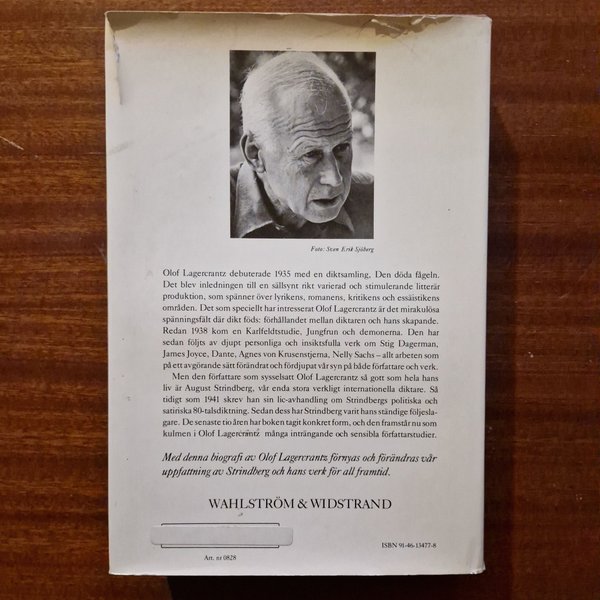 Foto: Sven Erik Sjöberg
Olof Lagercrantz debuterade 1935 med en diktsamling, Den döda fågeln.
Det blev inledningen till en sällsynt rikt varierad och stimulerande litterär
produktion, som spänner över lyrikens, romanens, kritikens och essäistikens
områden. Det som speciellt har intresserat Olof Lagercrantz är det mirakulösa
spänningsfält där dikt föds: förhållandet mellan diktaren och hans skapande.
Redan 1938 kom en Karlfeldtstudie, Jungfrun och demonerna. Den har
sedan följts av djupt personliga och insiktsfulla verk om Stig Dagerman,
James Joyce, Dante, Agnes von Krusenstjerna, Nelly Sachs – allt arbeten som
på ett avgörande sätt förändrat och fördjupat vår syn på både författare och verk.
Men den författare som sysselsatt Olof Lagercrantz så gott som hela hans
liv är August Strindberg, vår enda stora verkligt internationella diktare. Så
tidigt som 1941 skrev han sin lic-avhandling om Strindbergs politiska och
satiriska 80-talsdiktning. Sedan dess har Strindberg varit hans ständige följesla-
gare. De senaste tio åren har boken tagit konkret form, och den framstår nu som
kulmen i Olof Lagercrantz många inträngande och sensibla författarstudier.
Med denna biografi av Olof Lagercrantz förnyas och förändras vår
uppfattning av Strindberg och hans verk för all framtid.
WAHLSTRÖM & WIDSTRAND
ISBN 91-46-13477-8
Art. nr 0828